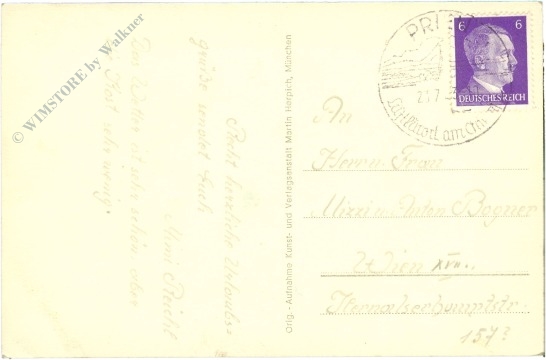 © WIMSTORE by Walkner
herzliche Urlaubs-
grüße sendet Euch
Mimi
Das Wetter ist sehr schön aber
sehr wenig.
Orig.-Aufnahme Kunst- und Verlagsanstalt Martin Herpich, München
PRIEN
21.7
am Chiemsee
6 6
DEUTSCHES REICH
An
Herrn u. Frau
Mizzi u. Anton Bogner
Wien XVII.
Hernalserhauptstr.
157?